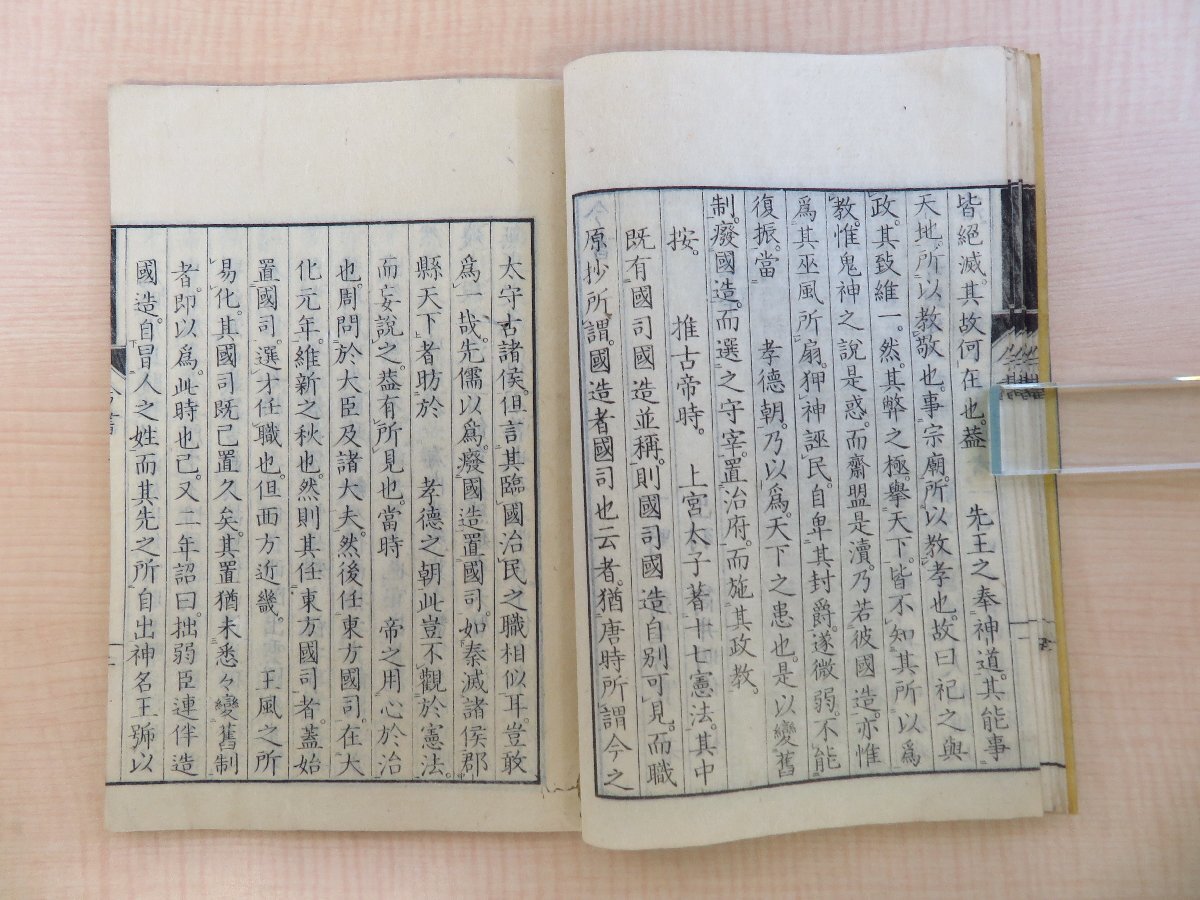 皆絕滅。其故何在也。蓋　先王之奉神道。其能事
天地。所以教敬也。事宗廟。所以教孝也。故曰祀之與
政。其致維一。然其弊之極。擧天下。皆不知其所以爲
教。惟鬼神之說是惑。而齋盟是瀆。乃若彼國造。亦惟
爲其巫風所扇。狎神誣民。自卑其封爵。遂微弱。不能
復振。當　孝德朝。乃以爲。天下之患也。是以變舊
制。廢國造。而選之守宰。置治府。而施其政教。
按。推古帝時。上宮太子著十七憲法。其中
既有國司國造並稱。則國司國造自別可見。而職
原抄所謂。國造者國司也云者。猶唐時所謂今之
太守古諸侯。但言其臨國治民之職相似耳。豈敢
爲一哉。先儒以爲。廢國造置國司。如秦滅諸侯郡
縣天下者昉於　孝德之朝此豈不觀於憲法。
而妄說之。蓋有所見也。當時　帝之用心於治
也。周問於大臣及諸大夫。然後任東方國司。在大
化元年。維新之秋也。然則其任東方國司者。蓋始
置國司。選才任職也。但西方近畿。王風之所
易化。其國司既已置久矣。其置猶未悉々變舊制
者。即以爲。此時也已。又二年詔曰。拙弱臣連伴造
國造。自冒人之姓而其先之所自出神名王號以